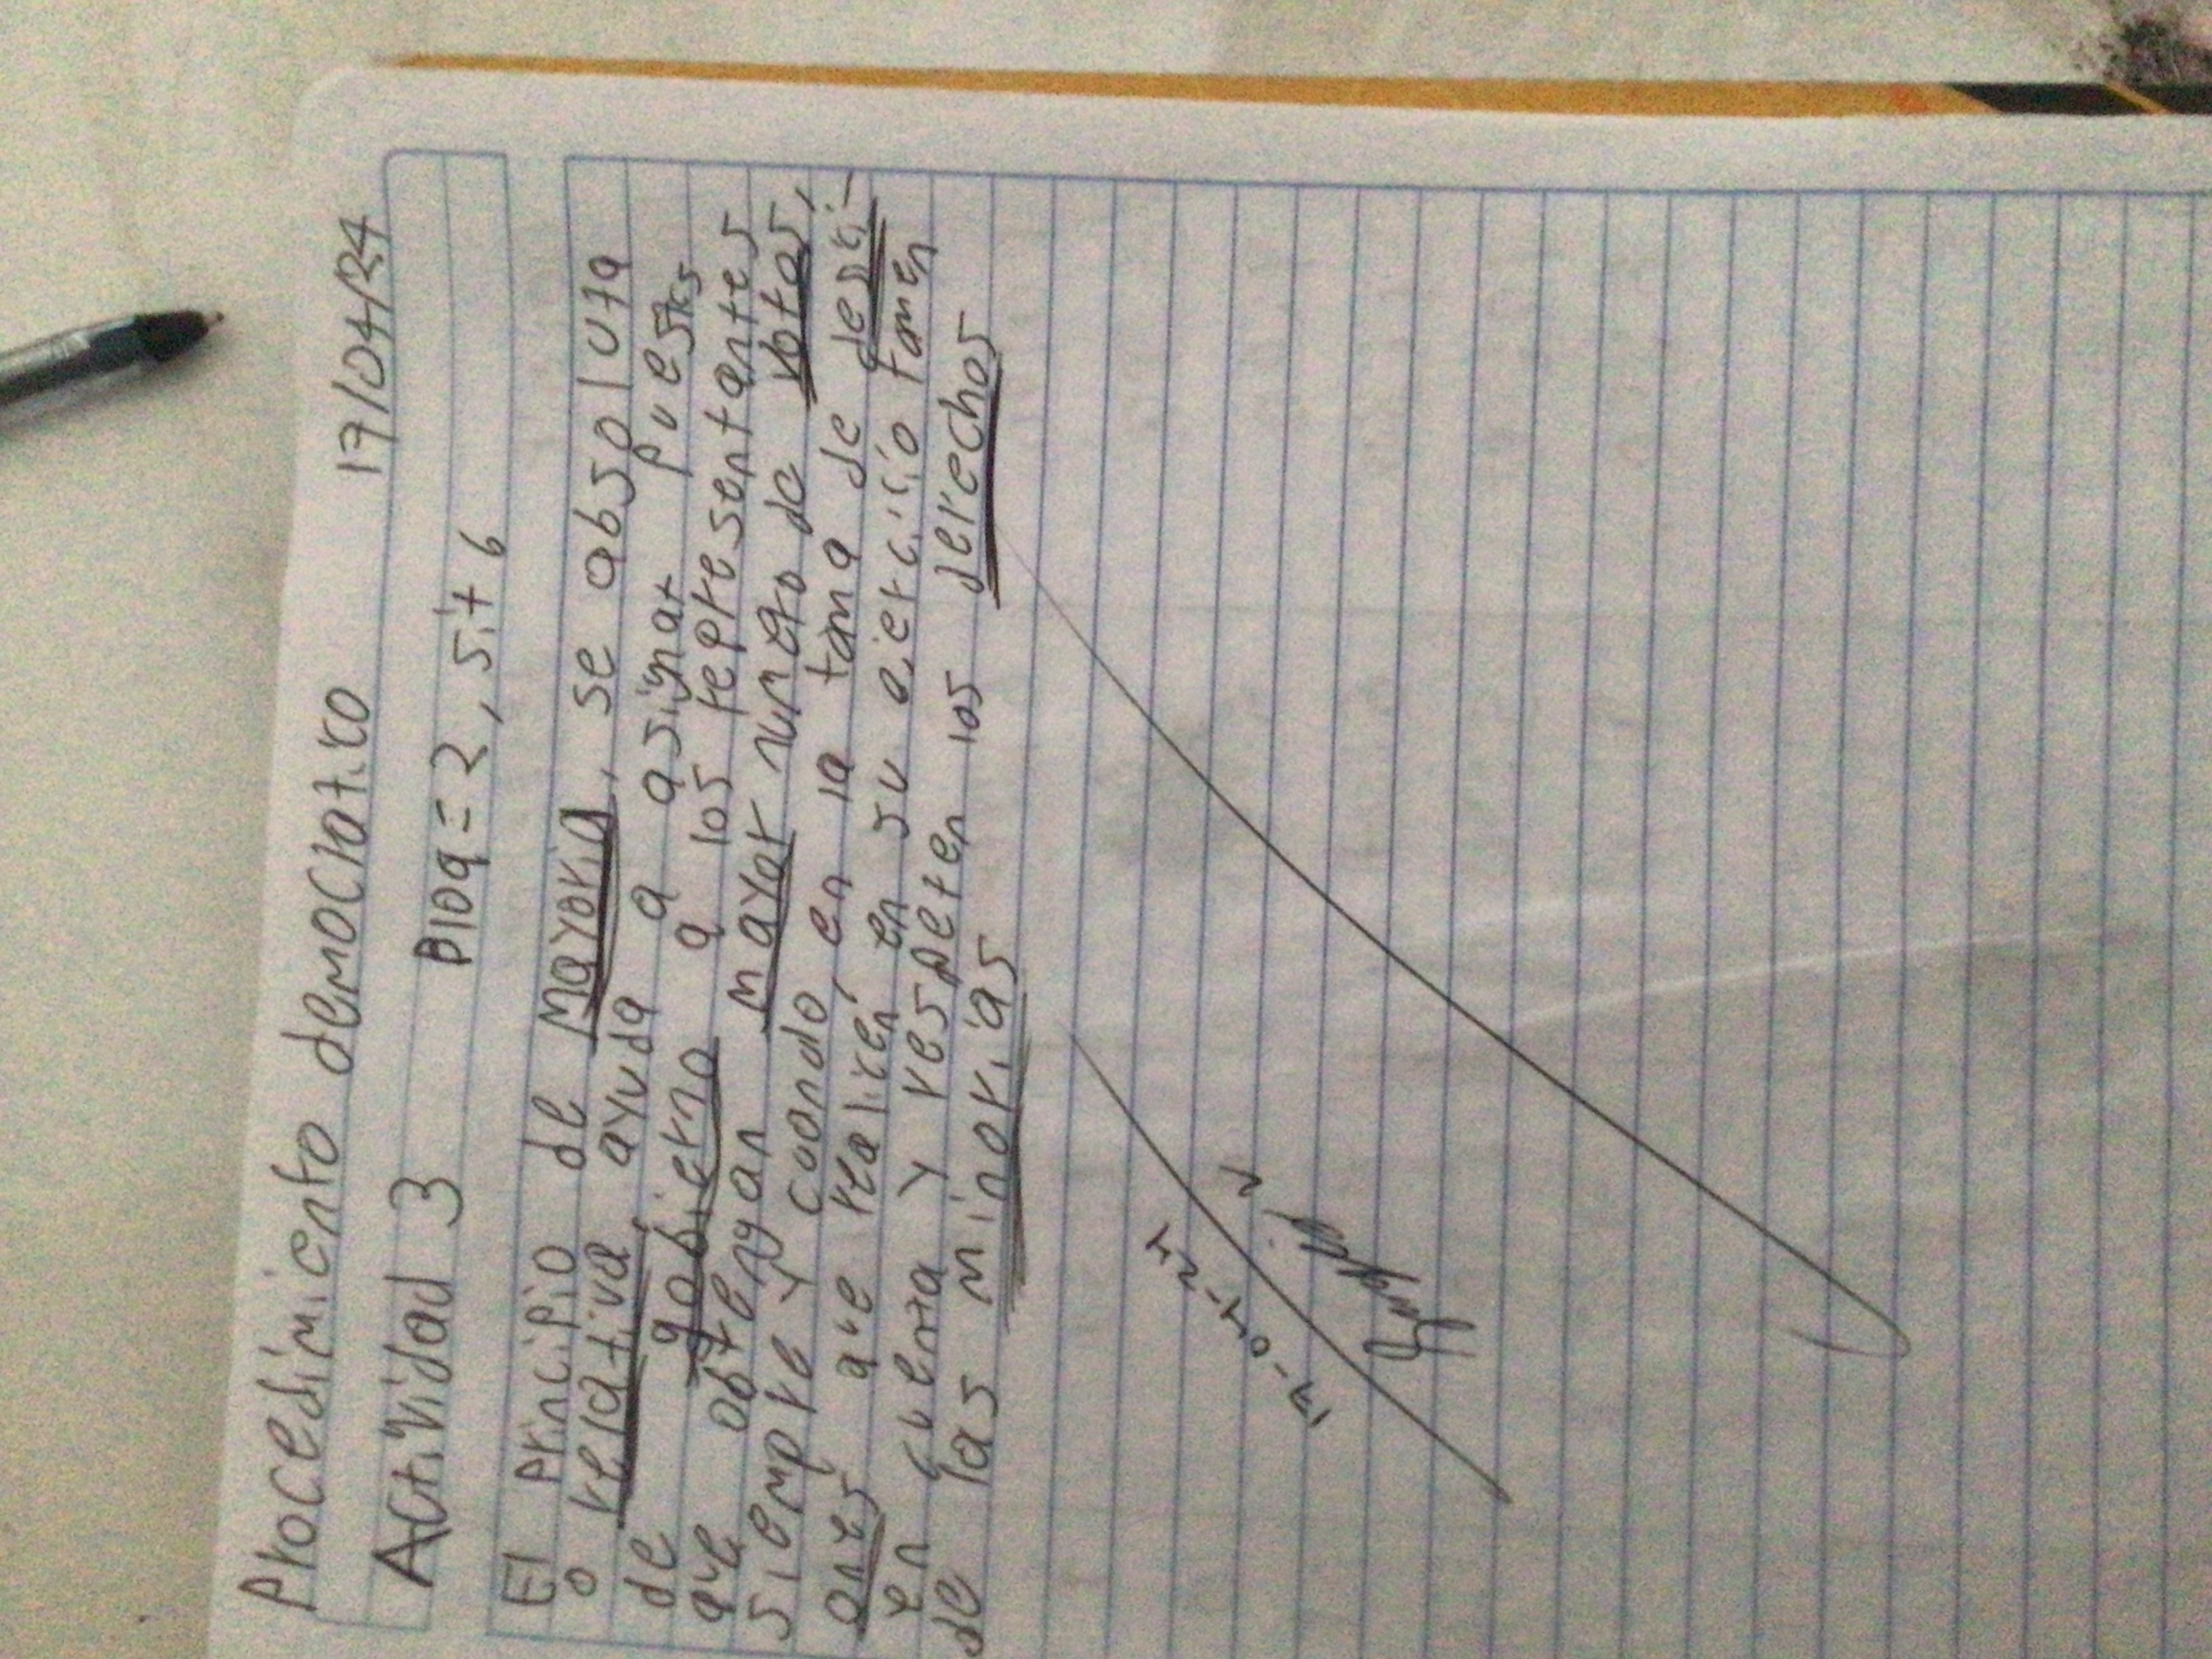 Procedimiento democratico 17/04/24
Actividad 3 Bloq=2, sit 6
El principio de mayoria, se absoluta
o relativa, ayuda a asignar puestos
de gobierno a los representantes
que obtengan mayor numero de votos,
siempre y cuando, en la toma de desici-
ones que realicen, en su ejercicio tomen
en cuenta y respeten los derechos
de las minorias
17-04-24